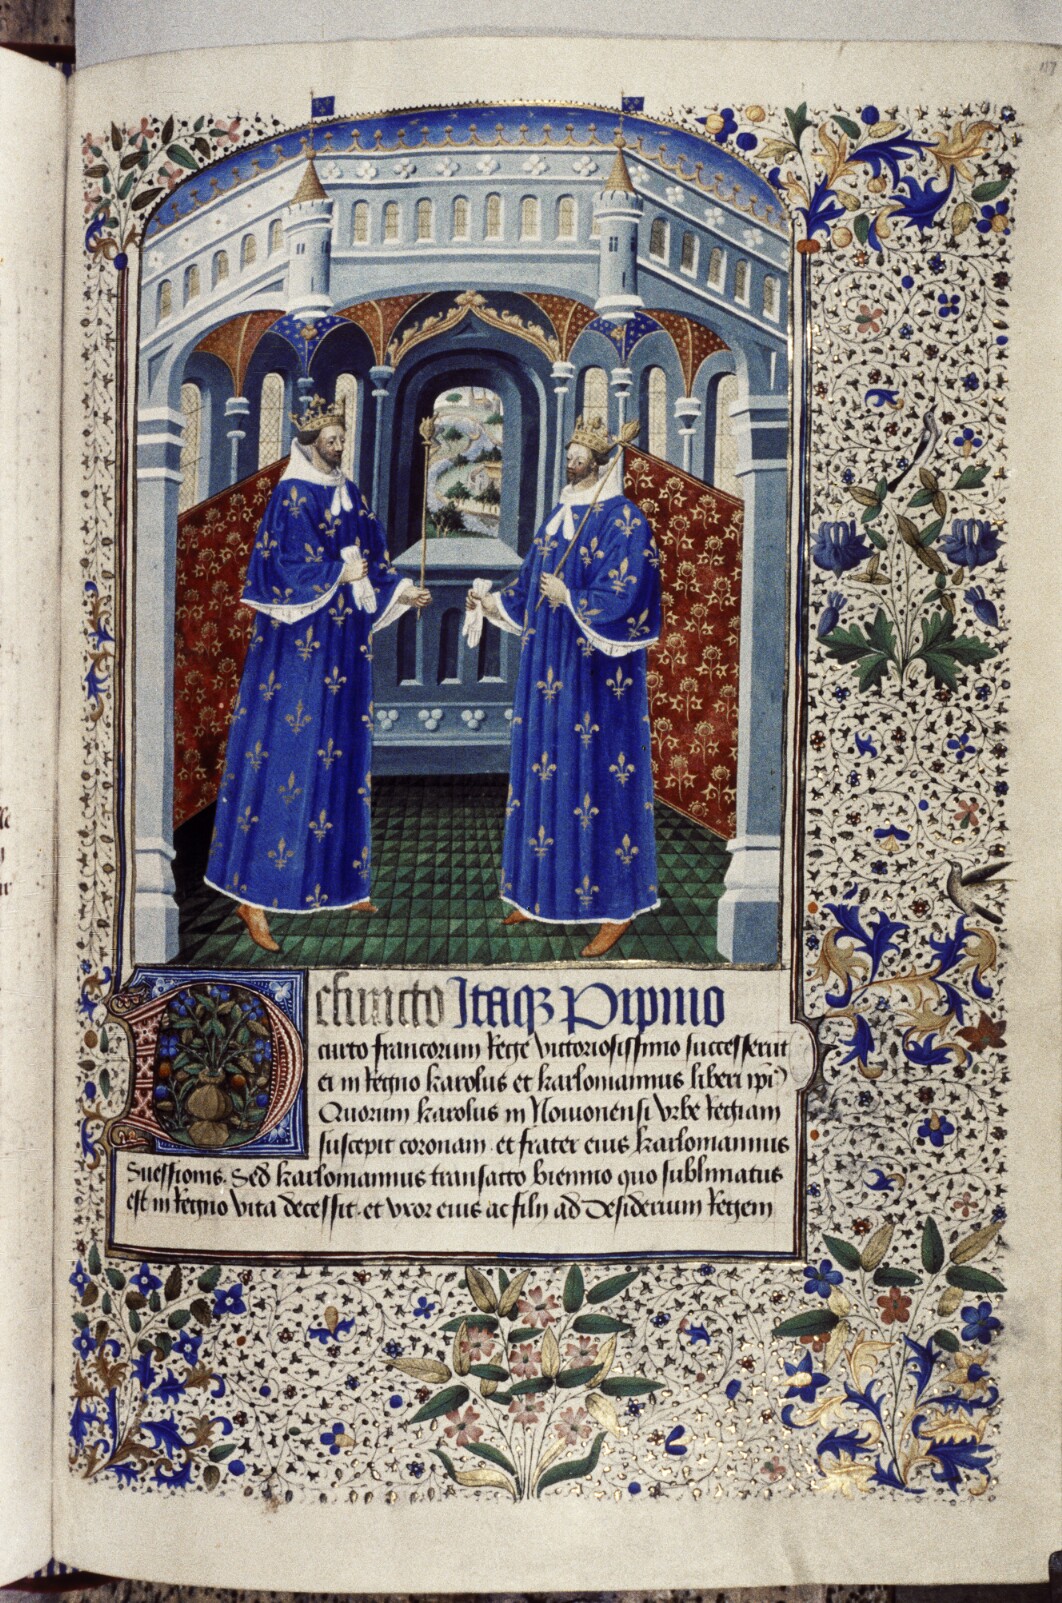 Defuncto Itaqꝫ Pipino
curto francorum Rege victoriosissimo successerūt
ei in Regno karolus et karlomannus liberi ipī
Quorum karolus in Nouionensi vrbe Regiam
suscepit coronam. et frater eius karlomannus
Suessionis. Sed karlomannus transacto biennio quo sublimatus
est in Regno vita decessit. et vxor eius ac filij ad Desiderium Regem